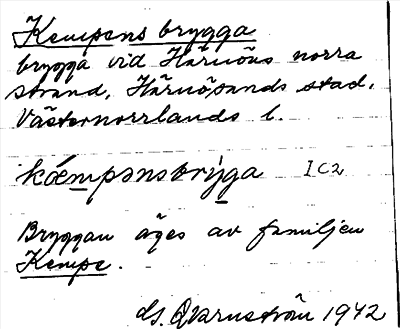 Kempens brygga
brygga vid Härnöns norra
strand, Härnösands stad,
Västernorrlands l.
kæ̀mpənsbrỳga IC2
Bryggan äges av familjen
Kempe.
G. Qvarnström 1942